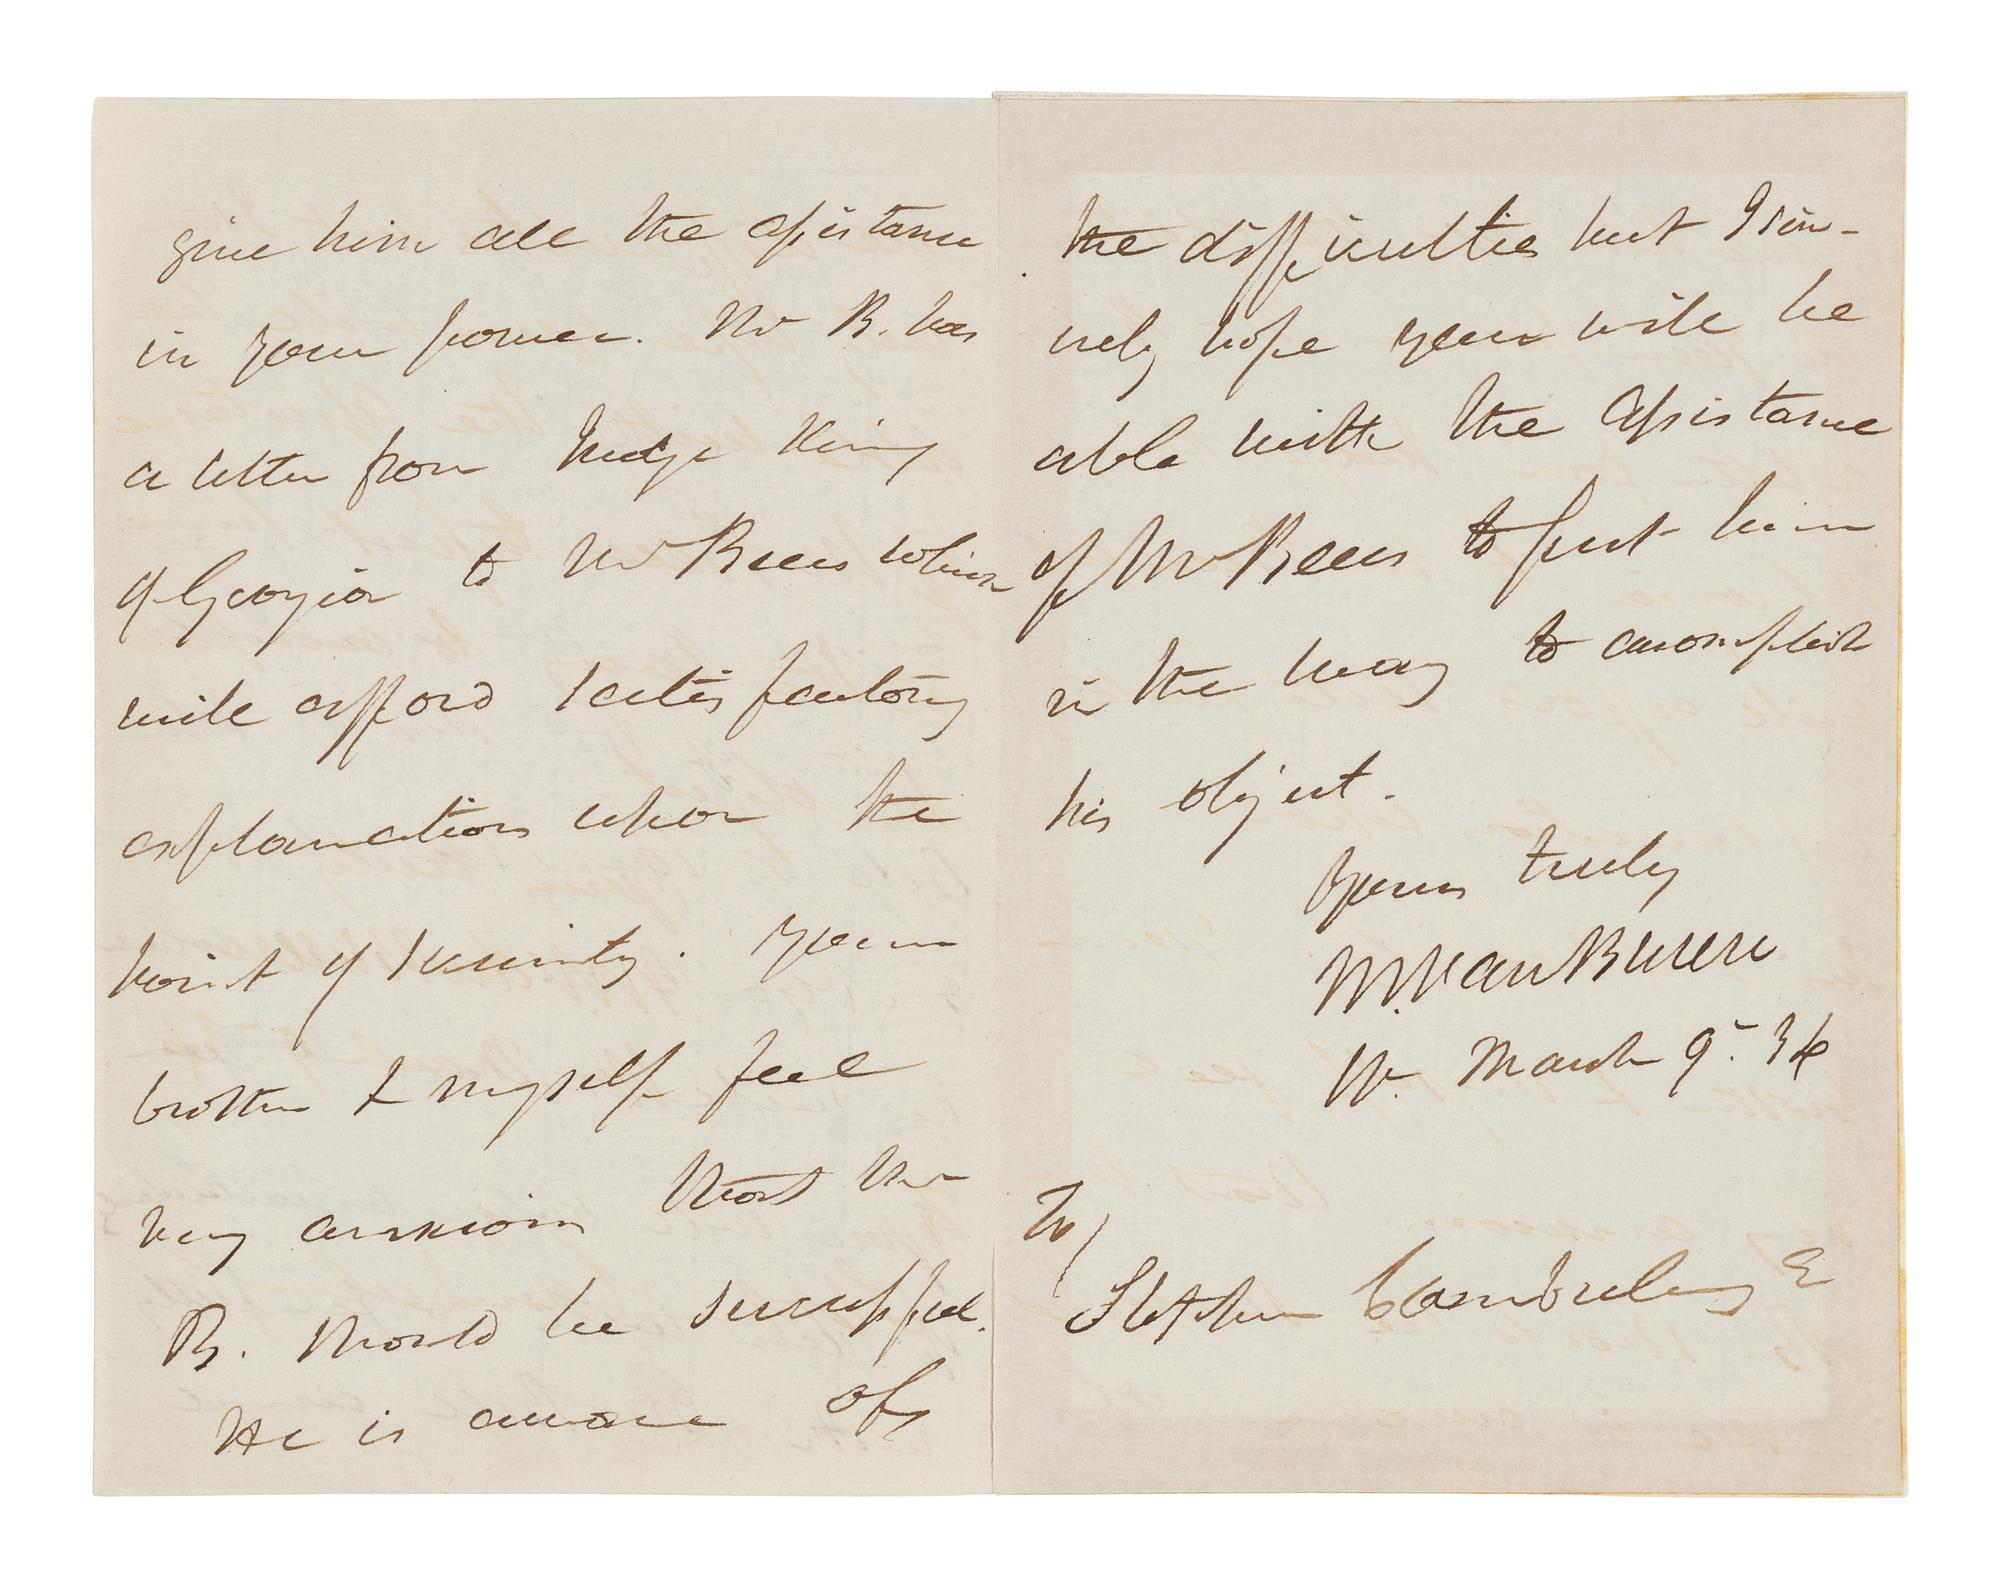 give him all the assistance
in your power. Mr B. has
a letter from Judge King
of Georgia to Mr Beers which
will afford satisfactory
explanations upon the
point of security. Your
brother & myself feel
very anxious that Mr
B. should be successful.
He is aware of
the difficulties but I sin-
cerely hope you will be
able with the assistance
of Mr Beers to put him
in the way to accomplish
his object.
Yours truly
M. Van Buren
W. March 9. 36
To
Stephen Cambreleng E